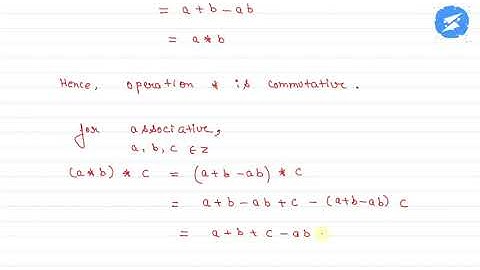 = a + b - ab
= a * b
Hence, operation * is commutative.
for associative,
a, b, c ∈ Z
(a * b) * c = (a + b - ab) * c
= a + b - ab + c - (a+b-ab) c
= a + b + c - ab